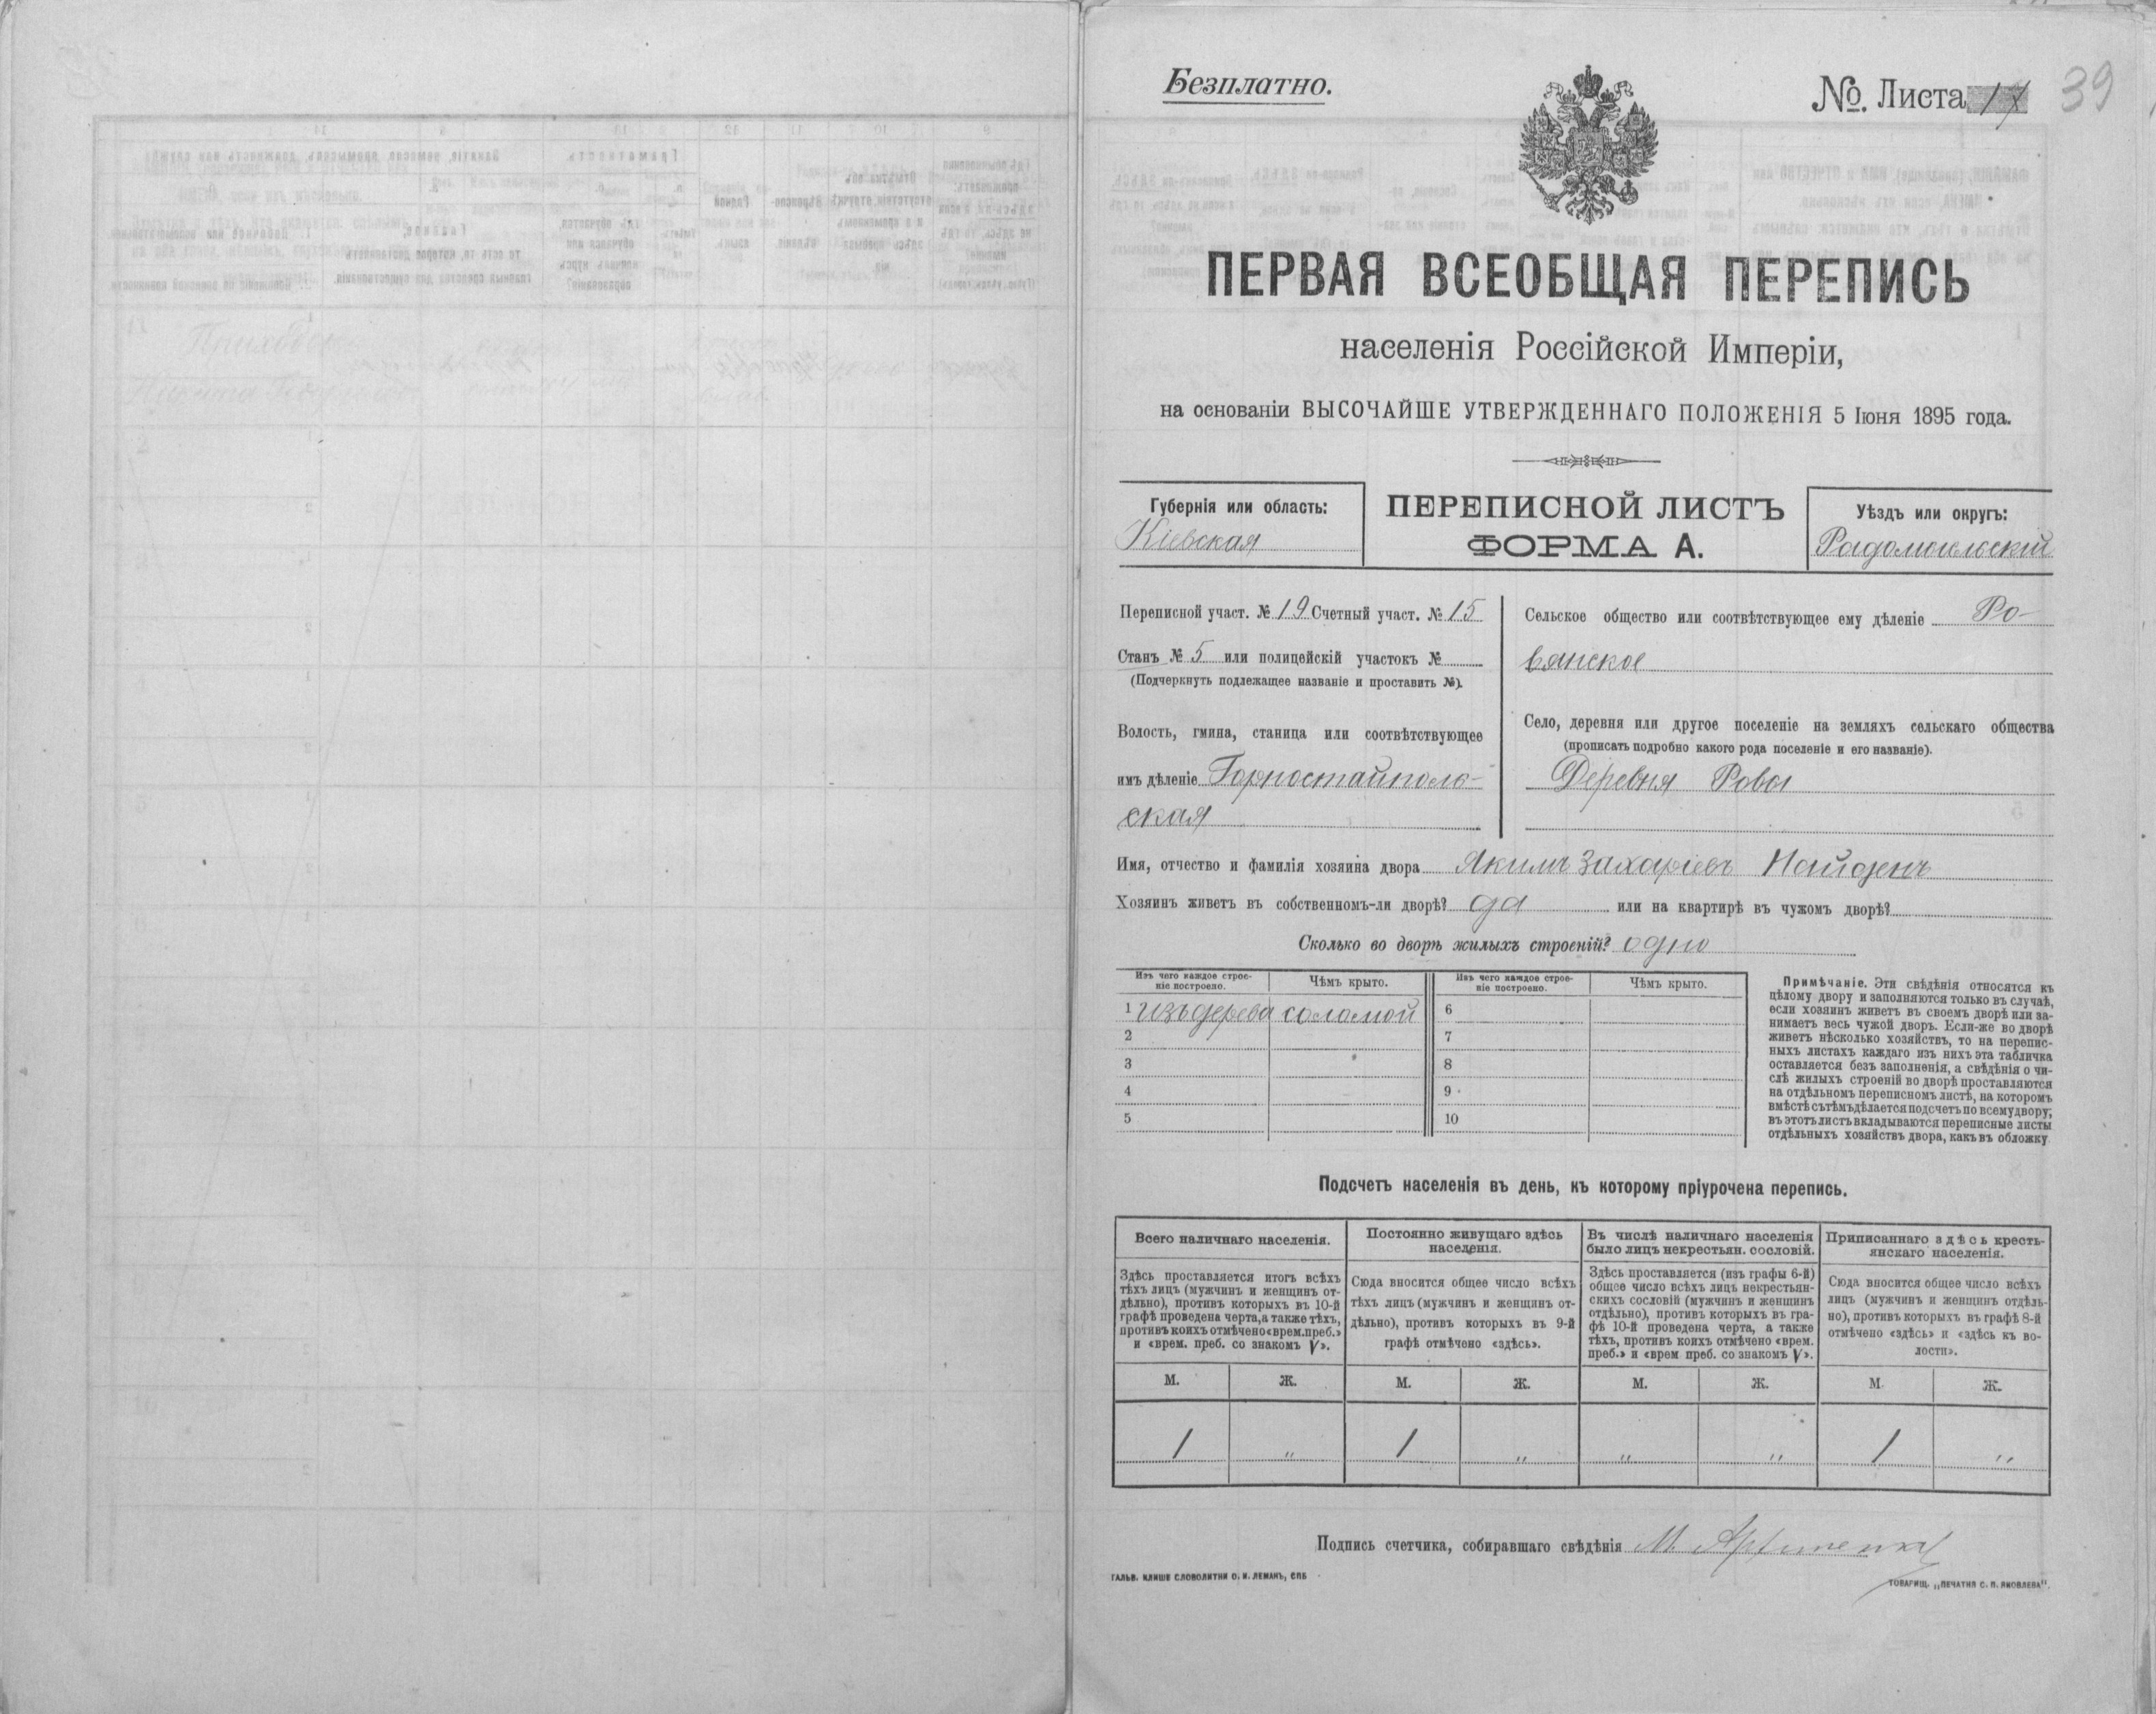 Безплатно.
№. Листа 17
39
ПЕРВАЯ ВСЕОБЩАЯ ПЕРЕПИСЬ
населенія Россійской Имперіи,
на основаніи ВЫСОЧАЙШЕ УТВЕРЖДЕННАГО ПОЛОЖЕНІЯ 5 Іюня 1895 года.
Губернія или область:
Кіевская
ПЕРЕПИСНОЙ ЛИСТЪ
ФОРМА А.
Уѣздъ или округъ:
Радомысльскій
Переписной участ. № 19 Счетный участ. № 15
Станъ № 5 или полицейскій участокъ №
(Подчеркнуть подлежащее названіе и проставить №).
Волость, гмина, станица или соотвѣтствующее
имъ дѣленіе Горностайполь-
ская
Сельское общество или соотвѣтствующее ему дѣленіе Ро-
вянское
Село, деревня или другое поселеніе на земляхъ сельскаго общества
(прописать подробно какого рода поселеніе и его названіе).
Деревня Ровы
Имя, отчество и фамилія хозяина двора Якимъ Захаріевъ Найденъ
Хозяинъ живетъ въ собственномъ-ли дворѣ? да или на квартирѣ въ чужомъ дворѣ?
Сколько во дворѣ жилыхъ строеній? одно
Изъ чего каждое строе-
ніе построено.
Чѣмъ крыто.
Изъ чего каждое строе-
ніе построено.
Чѣмъ крыто.
1 изъ дерева соломой 6
2 7
3 8
4 9
5 10
Примѣчаніе. Эти свѣдѣнія относятся къ
цѣлому двору и заполняются только въ случаѣ,
если хозяинъ живетъ въ своемъ дворѣ или за-
нимаетъ весь чужой дворъ. Если-же во дворѣ
живетъ нѣсколько хозяйствъ, то на перепис-
ныхъ листахъ каждаго изъ нихъ эта табличка
оставляется безъ заполненія, а свѣдѣнія о чи-
слѣ жилыхъ строеній во дворѣ проставляются
на отдѣльномъ переписномъ листѣ, на которомъ
вмѣстѣ съ тѣмъ дѣлается подсчетъ по всему двору;
въ этотъ листъ вкладываются переписные листы
отдѣльныхъ хозяйствъ двора, какъ въ обложку
Подсчетъ населенія въ день, къ которому пріурочена перепись.
Всего наличнаго населенія.
Здѣсь проставляется итогъ всѣхъ
тѣхъ лицъ (мужчинъ и женщинъ от-
дѣльно), противъ которыхъ въ 10-й
графѣ проведена черта, а также тѣхъ,
противъ коихъ отмѣчено «врем. преб.»
и «врем. преб. со знакомъ V».
Постоянно живущаго здѣсь
населенія.
Сюда вносится общее число всѣхъ
тѣхъ лицъ (мужчинъ и женщинъ от-
дѣльно), противъ которыхъ въ 9-й
графѣ отмѣчено «здѣсь».
Въ числѣ наличнаго населенія
было лицъ некрестьян. сословій.
Здѣсь проставляется (изъ графы 6-й)
общее число всѣхъ лицъ некрестьян-
скихъ сословій (мужчинъ и женщинъ
отдѣльно), противъ которыхъ въ гра-
фѣ 10-й проведена черта, а также
тѣхъ, противъ коихъ отмѣчено «врем.
преб.» и «врем преб. со знакомъ V».
Приписаннаго здѣсь кресть-
янскаго населенія.
Сюда вносится общее число всѣхъ
лицъ (мужчинъ и женщинъ отдѣль-
но), противъ которыхъ въ графѣ 8-й
отмѣчено «здѣсь» и «здѣсь къ во-
лости».
М. Ж. М. Ж. М. Ж. М Ж.
1 " 1 " " " 1 "
Подпись счетчика, собиравшаго свѣдѣнія М.
ГАЛЬВ. КЛИШЕ СЛОВОЛИТНИ О. И. ЛЕМАНЪ, СПБ
ТОВАРИЩ. „ПЕЧАТНЯ С. П. ЯКОВЛЕВА".